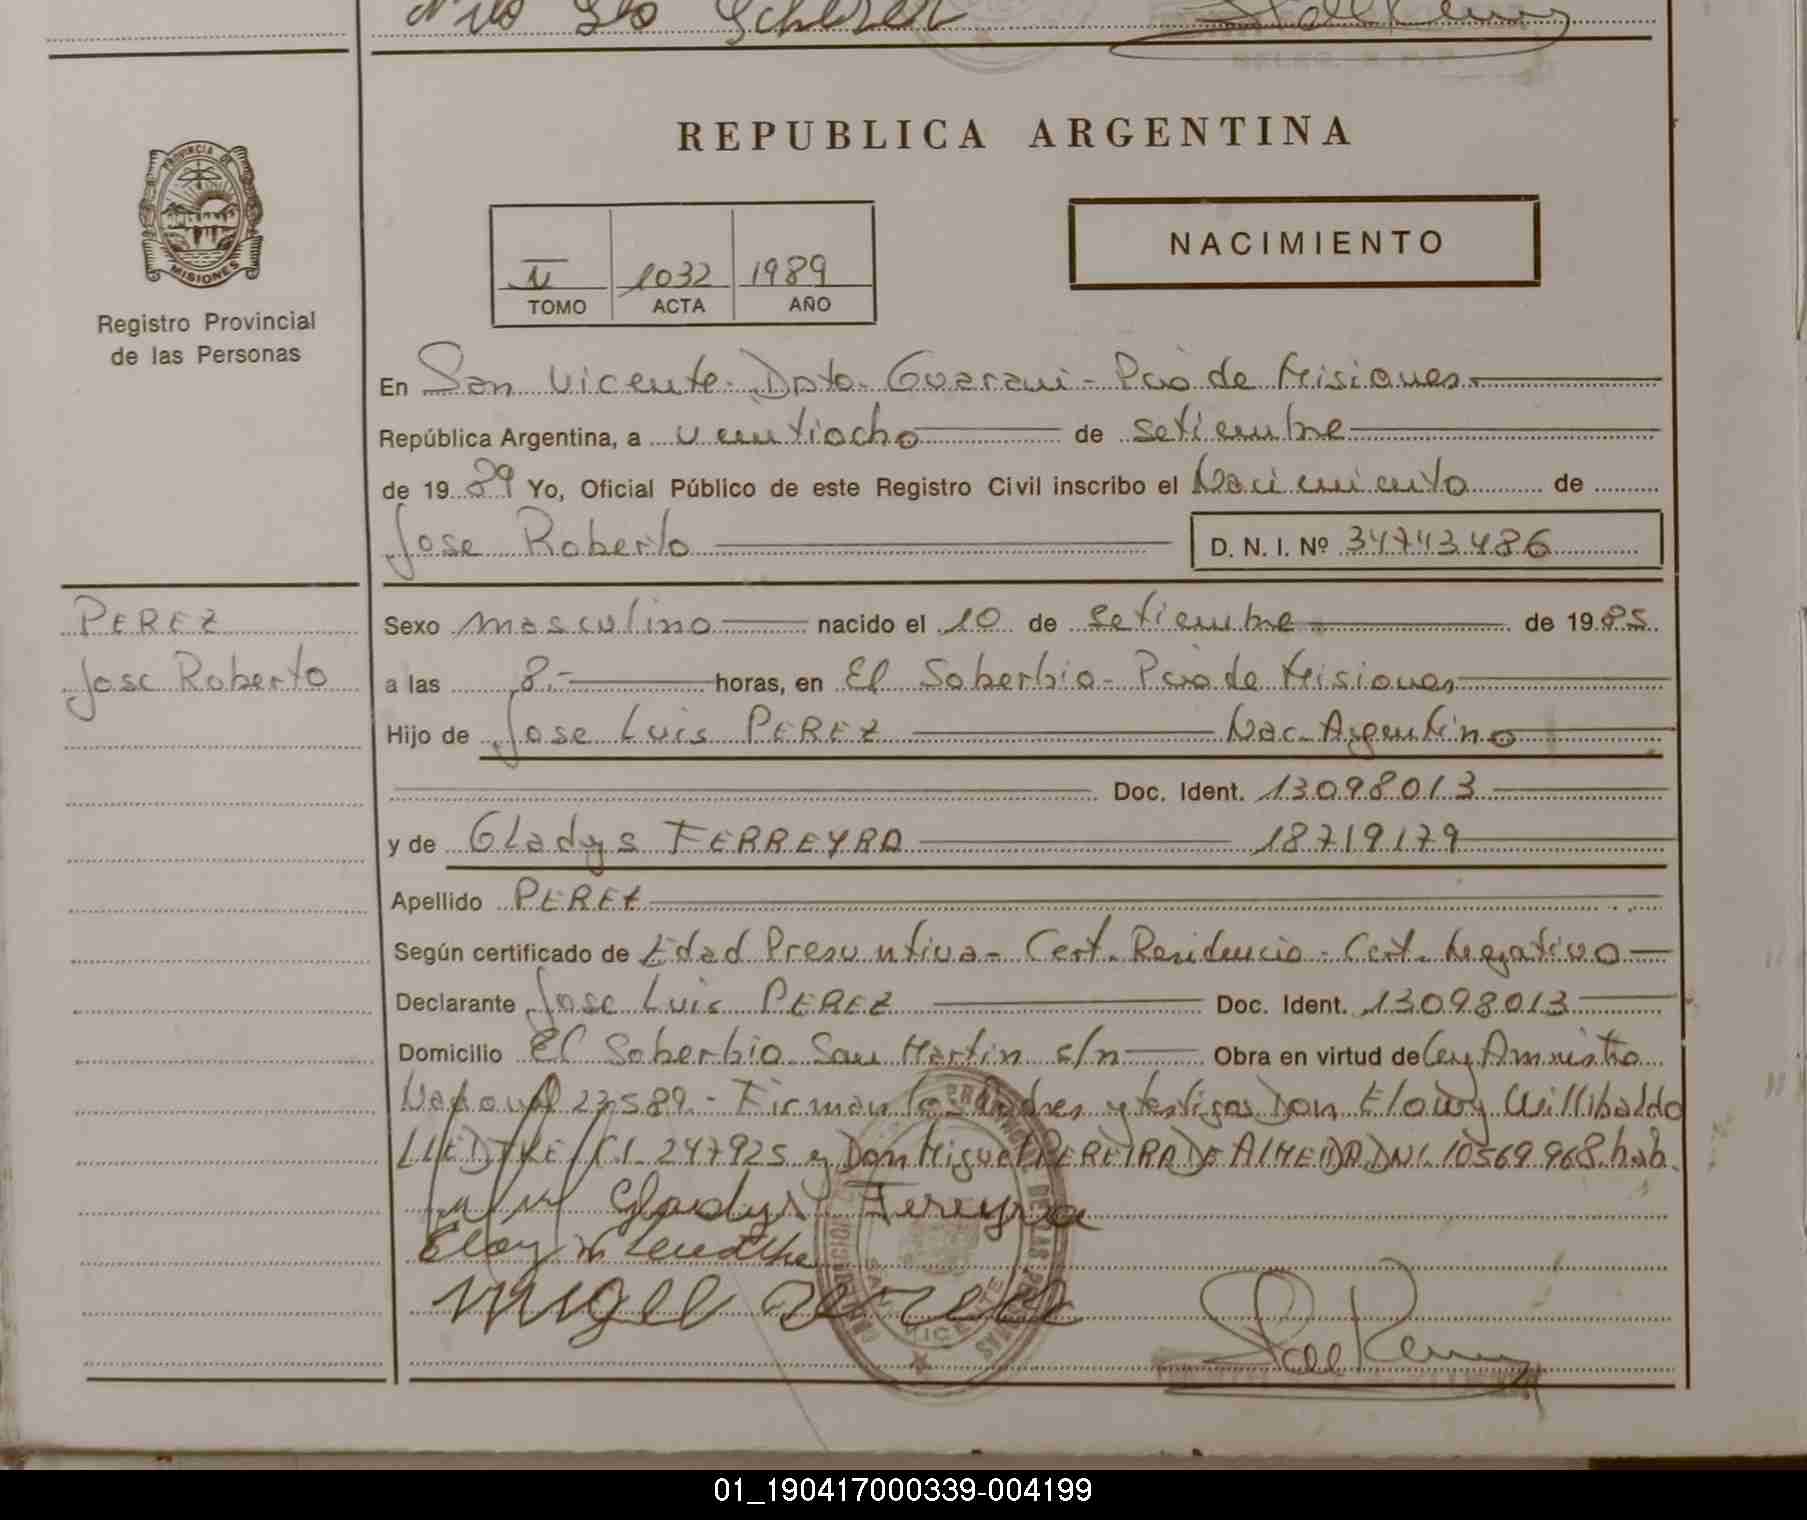 REPUBLICA ARGENTINA
PROVINCIA DE
MISIONES
Registro Provincial
de las Personas
NACIMIENTO
1032 1989
TOMO ACTA AÑO
En San Vicente - Dpto. Guarani - Pcia de Misiones
República Argentina, a veintiocho de setiembre
de 1989 Yo, Oficial Público de este Registro Civil inscribo el Nacimiento de
Jose Roberto D. N. I. Nº 34743486
PEREZ
Jose Roberto
Sexo masculino nacido el 10 de setiembre de 1985
a las 8.- horas, en El Soberbio - Pcia de Misiones
Hijo de Jose Luis PEREZ Nac. Argentino
Doc. Ident. 13098013
y de Gladys FERREYRA 18719179
Apellido PEREZ
Según certificado de Edad Presuntiva - Cert. Residencia - Cert. Negativo
Declarante Jose Luis PEREZ Doc. Ident. 13098013
Domicilio El Soberbio San Martin s/n Obra en virtud de Ley Amnistia
Nacional 23589.- Firman los Padres y testigos Don Eloy Willibaldo
C.I. 247925 y Don Miguel PEREIRA DE ALMEIDA DNI. 10569968 hab.
Gladys Fereyra
Eloy W
Migel
01_190417000339-004199